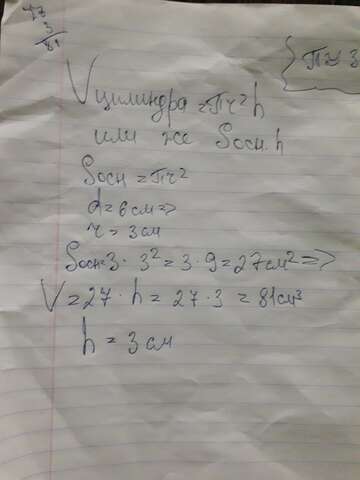 27
3
81
π≈3
Vцилиндра=πr²h
или же Sосн.h
Sосн=πr²
d=6см=>
r=3см
Sосн=3·3²=3·9=27см²=>
V=27·h=27·3=81см³
h=3см